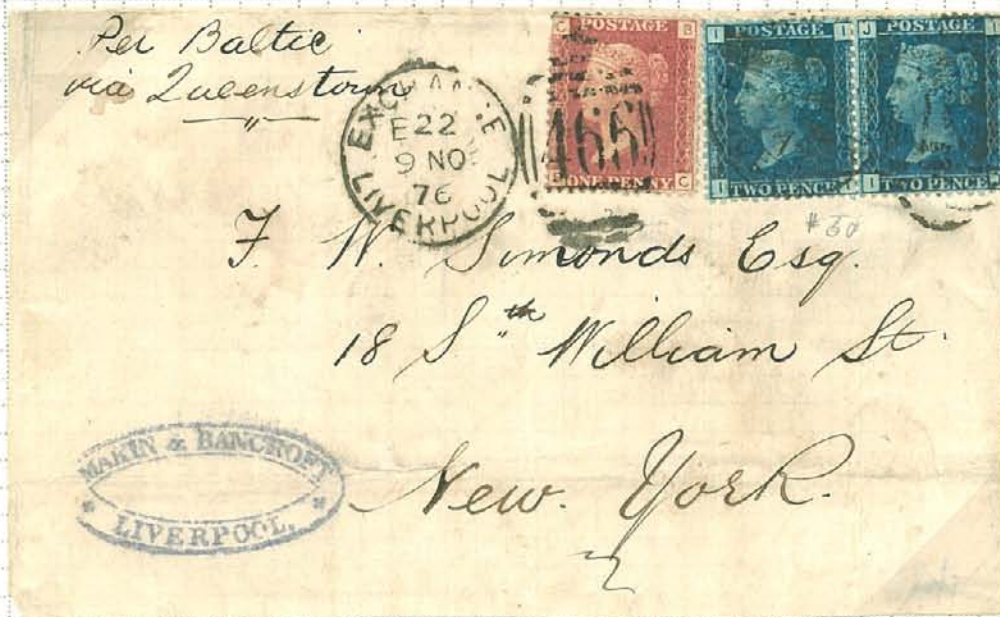 Per Baltic
via Queenstown
EXCHANGE
E 22
9 NO
76
LIVERPOOL
466
C POSTAGE B
ONE PENNY C
I POSTAGE I
I TWO PENCE
J POSTAGE I
I TWO PENCE
F. W. Simonds Esq.
18 Sth William St.
New York.
MAKIN & BANCROFT
LIVERPOOL.